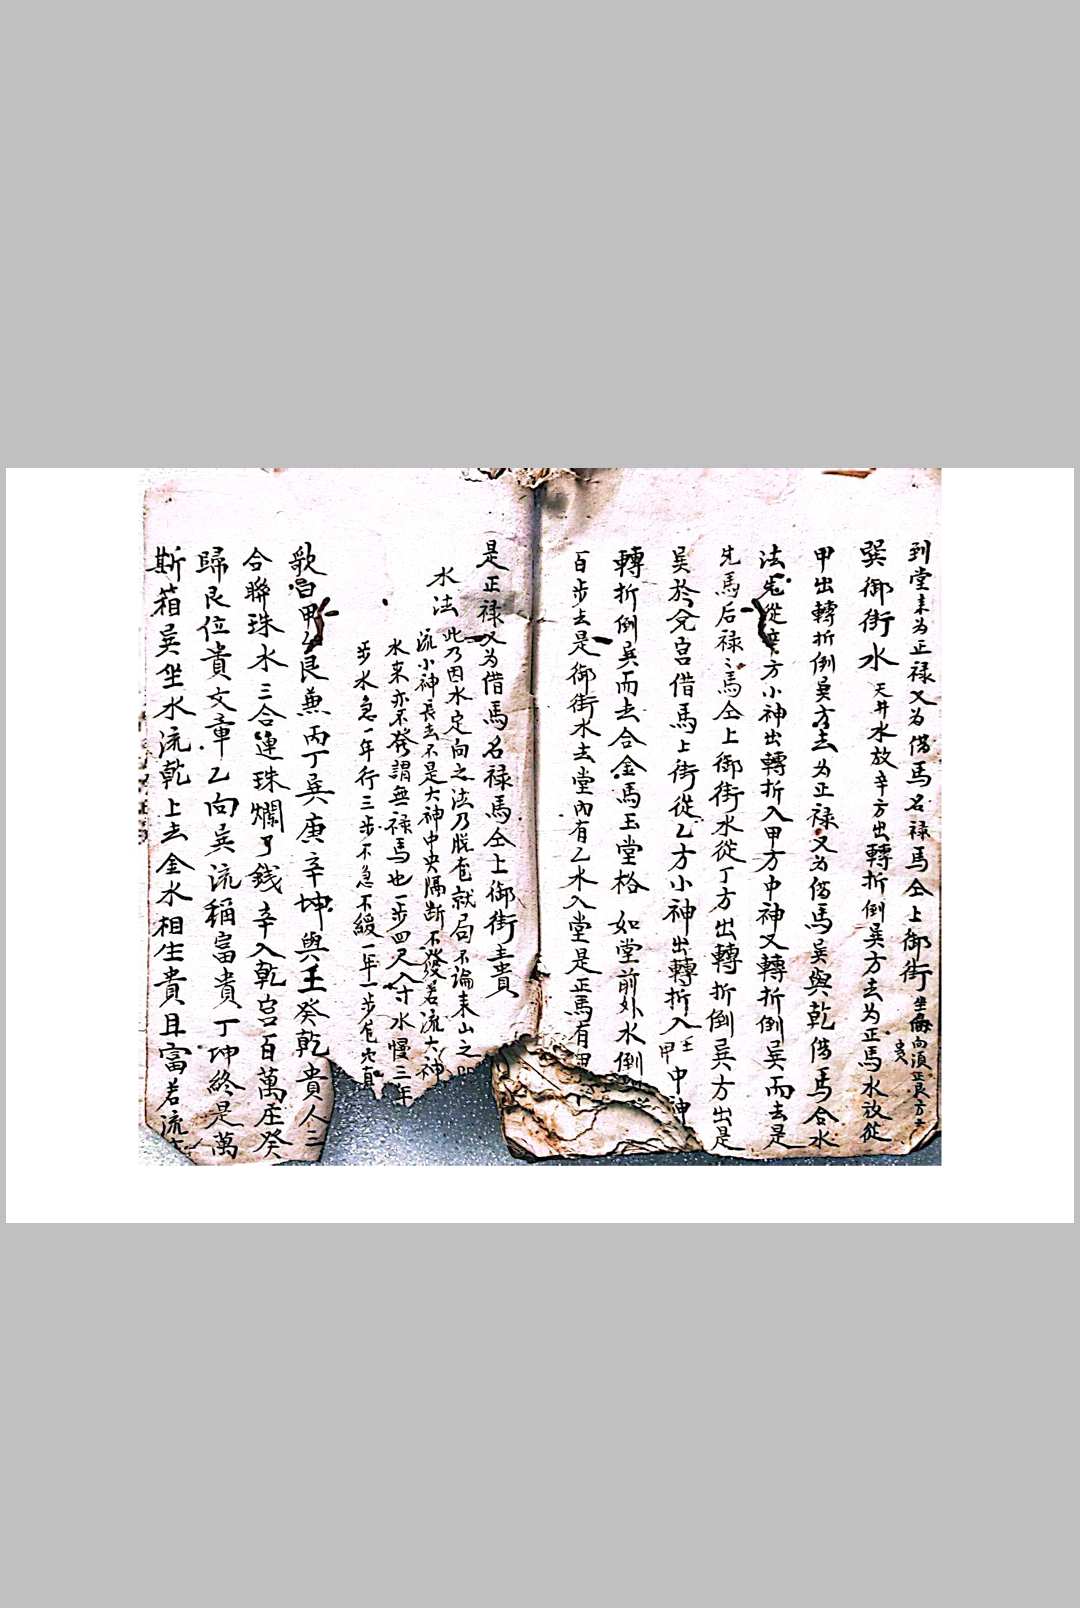 到堂来为正禄又为借馬名禄馬仝上御街坐向須正艮方
巽御街水天井水放辛方出轉折倒巽方去为正馬水放従
甲出轉折倒巽方去为正禄又为借馬巽與乾借馬合水
法先從辛方小神出轉折入甲方中神又轉折倒巽而去是
先馬后禄禄馬仝上御街水從丁方出轉折倒巽方出是
巽於兌宮借馬上街從乙方小神出轉折入甲中神
轉折倒巽而去合金馬玉堂格 如堂前外水倒
百步去是御街水去堂內有乙水入堂是正馬有
是正禄又为借馬名禄馬仝上御街主貴
水法 此乃因水定向之法乃脱龍就局不論来山之
流小神長去不是大神中央隔断不發若流大神
水来亦不發謂無禄馬也一步四尺八寸水慢三年
步水急一年行三步不急不緩一年一步
歌曰甲艮兼丙丁巽庚辛坤與壬癸乾貴人三
合聯珠水三合連珠爛了錢辛入乾宮百萬庄癸
歸艮位貴文章乙向巽流稱富貴丁坤終是萬
斯箱巽坐水流乾上去金水相生貴且富若流